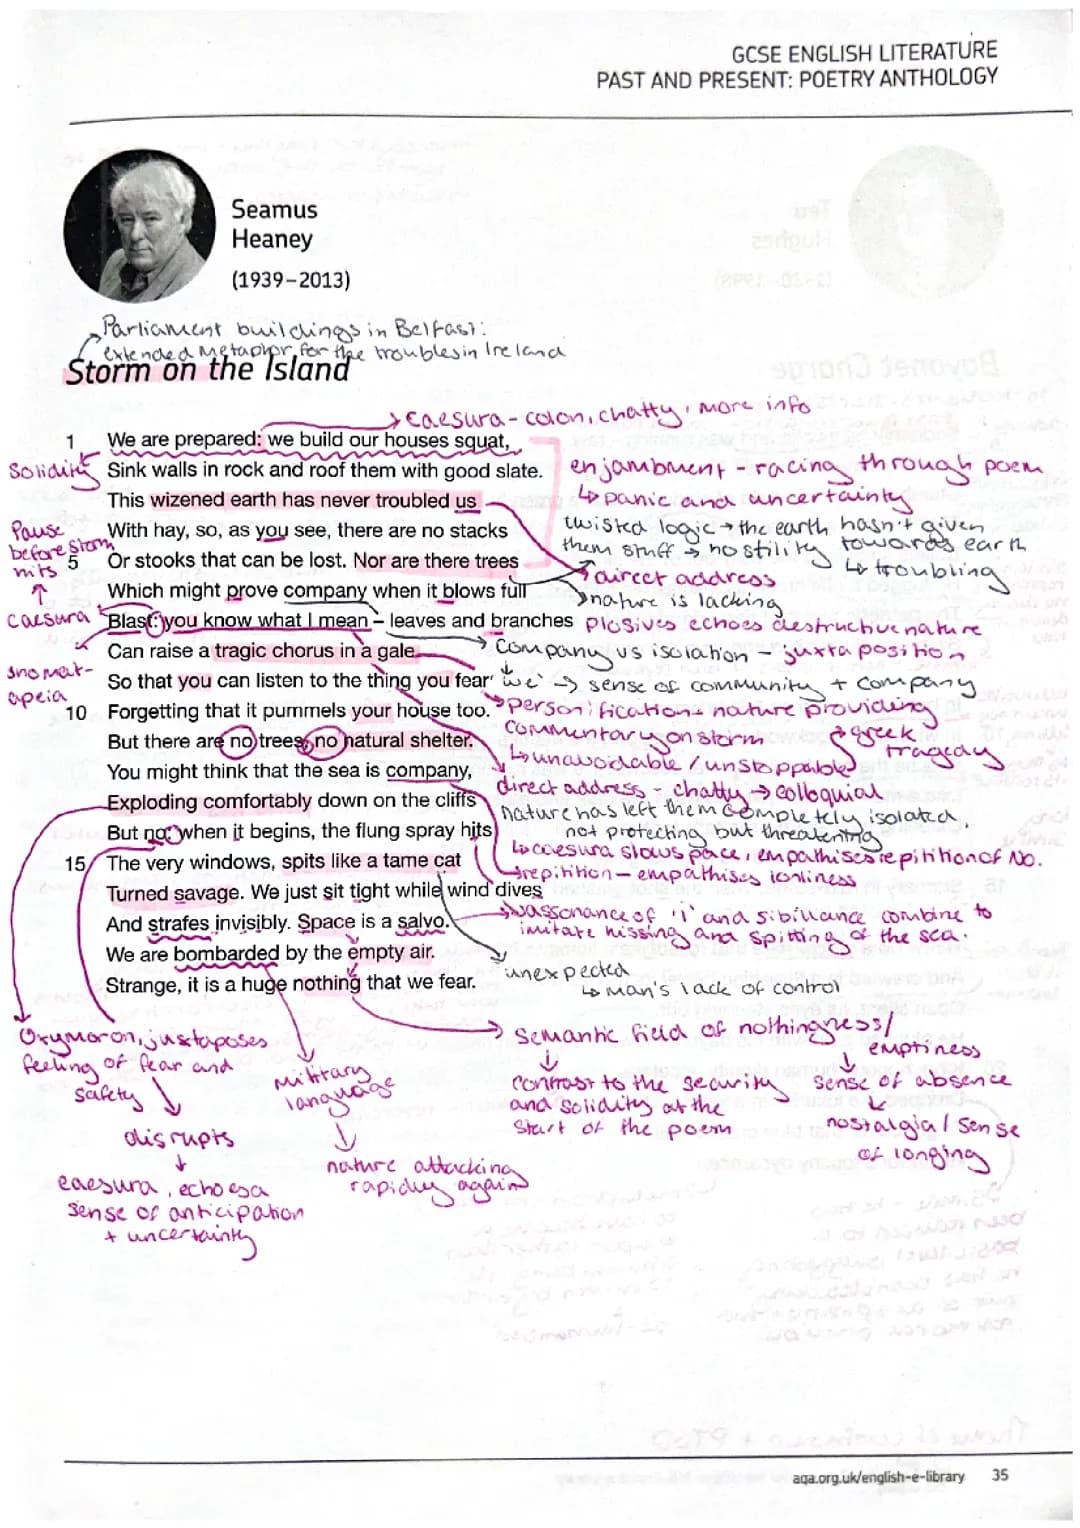 GCSE ENGLISH LITERATURE
PAST AND PRESENT: POETRY ANTHOLOGY
Seamus
Heaney
(1939–2013)
Parliament buildings in Belfast:
extended metaphor for the troubles in Ireland
Storm on the Island
caesura - colon, chatty, more info
1 We are prepared: we build our houses squat,
Solidity
Sink walls in rock and roof them with good slate.
enjambment - racing through poem
↳ panic and uncertainty
This wizened earth has never troubled us
With hay, so, as you see, there are no stacks
twisted logic → the earth hasn't given
them stuff → hostility towards earth
↳ troubling
Pause
before storm
hits
↑
caesura
5 Or stooks that can be lost. Nor are there trees
direct address
Which might prove company when it blows full
nature is lacking
Blast: you know what I mean – leaves and branches
plosives echoes destructive nature
Can raise a tragic chorus in a gale
company vs isolation - juxtaposition
onomat-
apeia
So that you can listen to the thing you fear
'we' → sense of community + company
10 Forgetting that it pummels your house too.
personification - nature providing
commentary on storm
→ greek
tragedy
↳ unavoidable / unstoppable
But there are no trees, no natural shelter.
You might think that the sea is company,
direct address - chatty → colloquial
Exploding comfortably down on the cliffs
nature has left them completely isolated.
not protecting but threatening
But no: when it begins, the flung spray hits
↳ caesura slows pace, empathises repitition of No.
15 The very windows, spits like a tame cat
repitition - empathises lonliness
Turned savage. We just sit tight while wind dives
assonance of 'i' and sibillance combine to
imitate hissing and spitting of the sea.
And strafes invisibly. Space is a salvo.
We are bombarded by the empty air.
Strange, it is a huge nothing that we fear.
unexpected
↳ man's lack of control
Oxymoron, juxtaposes
feeling of fear and
safety
disrupts
↓
caesura, echoes a
sense of anticipation
+ uncertainty
military
language
↓
nature attacking
rapidley again
semantic field of nothingness/
emptiness
↓
contrast to the security
and solidity at the
start of the poem
↓
sense of absence
↓
nostalgia / sense
of longing
aqa.org.uk/english-e-library 35